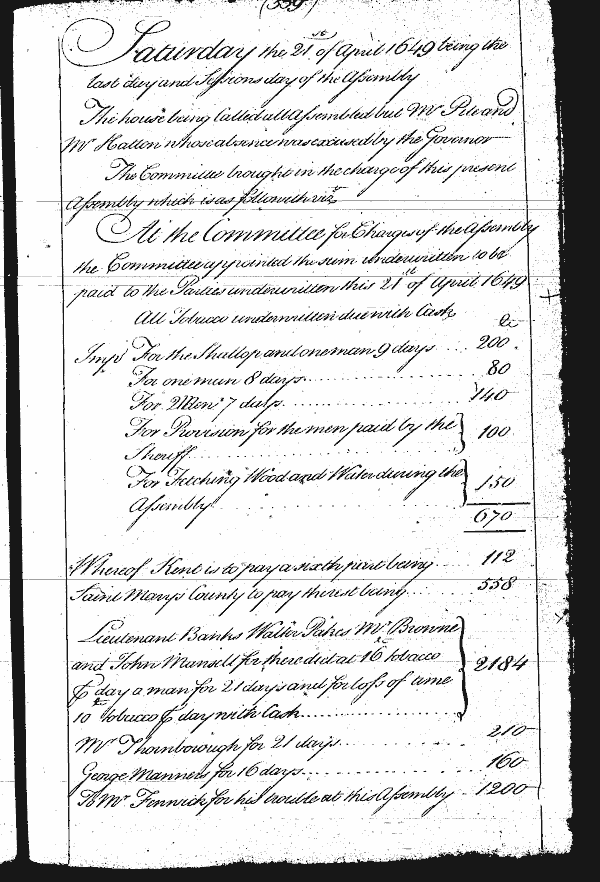 (339)
Saturday the 21st of April 1649 being the
last day and Sessions day of the Assembly
The house being Called all Assembled but Mr Pile and
Mr Hatton whose absence was excused by the Governor
The Committee brought in the charge of this present
Assembly which is as followeth viz
At the Committee for Charges of the Assembly
the Committee appointed the sum underwritten to be
paid to the Parties underwritten this 21st of April 1649
All Tobacco underwritten due with Cask
Imps For the Shallop and one man 9 days .... 200.
For one man 8 days .... 80
For 2 Men 7 days .... 140
For Provision for the men paid by the } 100
Sheriff ....
For Fetching Wood and Water during the } 150
Assembly ....
670
Whereof Kent is to pay a sixth part being .... 112
Saint Marys County to pay the rest being .... 558
Lieutenant Banks Walter Pakes Mr Browne
and John Mansell for there diet at 16 tobacco } 2184
⅌ day a man for 21 days and for loss of time
10 tobacco ⅌ day with Cask ....
Mr Thornborough for 21 days .... 210
George Manners for 16 days .... 160
To Mr Fenwick for his trouble at this Assembly 1200